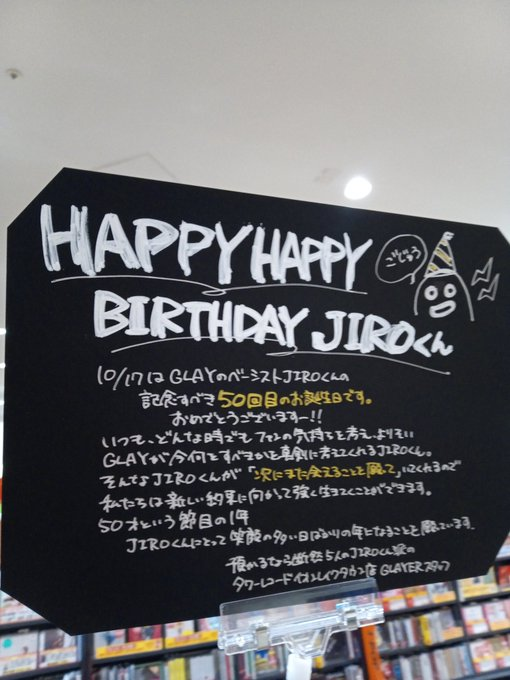 HAPPY HAPPY
ごじゅう
BIRTHDAY JIROくん
10/17は GLAYのベーシストJIROくんの
記念すべき 50回目のお誕生日です。
おめでとうございますー!!
いつも、どんな時でもファンの気持ちを考え、よりそい
GLAYが今何をすべきかを真剣に考えてくれるJIROくん。
そんなJIROくんが「次にまた会えることを願って」いてくれるので
私たちは新しい約束に向かって強く生きてくことができます。
50才という節目の1年
JIROくんにとって笑顔の多い日ばかりの年になることを願っています。
預かるなら断然5人のJIROくん派の
タワーレコードイオンレイクタウン店 GLAYERスタッフ